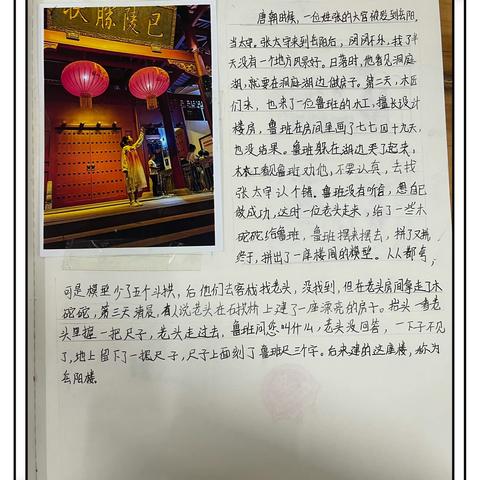 巴陵勝狀
唐朝时候，一位姓张的大官被贬到岳阳
当太守。张太守来到岳阳后，闷闷不乐，找了半
天没有一个地方风景好。日落时，他看见洞庭
湖，就要在洞庭湖边做房子。第二天，木匠
们来，也来了一位鲁班的木工，擅长设计
楼房，鲁班在房间里画了七七四十九天，
也没结果。鲁班躲在湖边哭了起来，
木工看见鲁班劝他，不要认真，去找
张太守认个错。鲁班没有听信，想自己
做成功，这时一位老头走来，给了一些木
砣砣给鲁班，鲁班摆来摆去，拼了又拼，
终于，拼出了一座楼阁的模型。人人都夸，
可是模型少了五个斗拱，后他们去客栈找老头，没找到，但在老头房间拿走了木
砣砣，第三天清晨，有人说老头在石拱桥上建了一座漂亮的房子。岩头一看老
头里握一把尺子，老头走过去，鲁班问您叫什么，老头没回答，一下子不见
了，地上留下了一把尺子，尺子上面刻了鲁班尺三个字。后来建的这座楼，称为
岳阳楼。